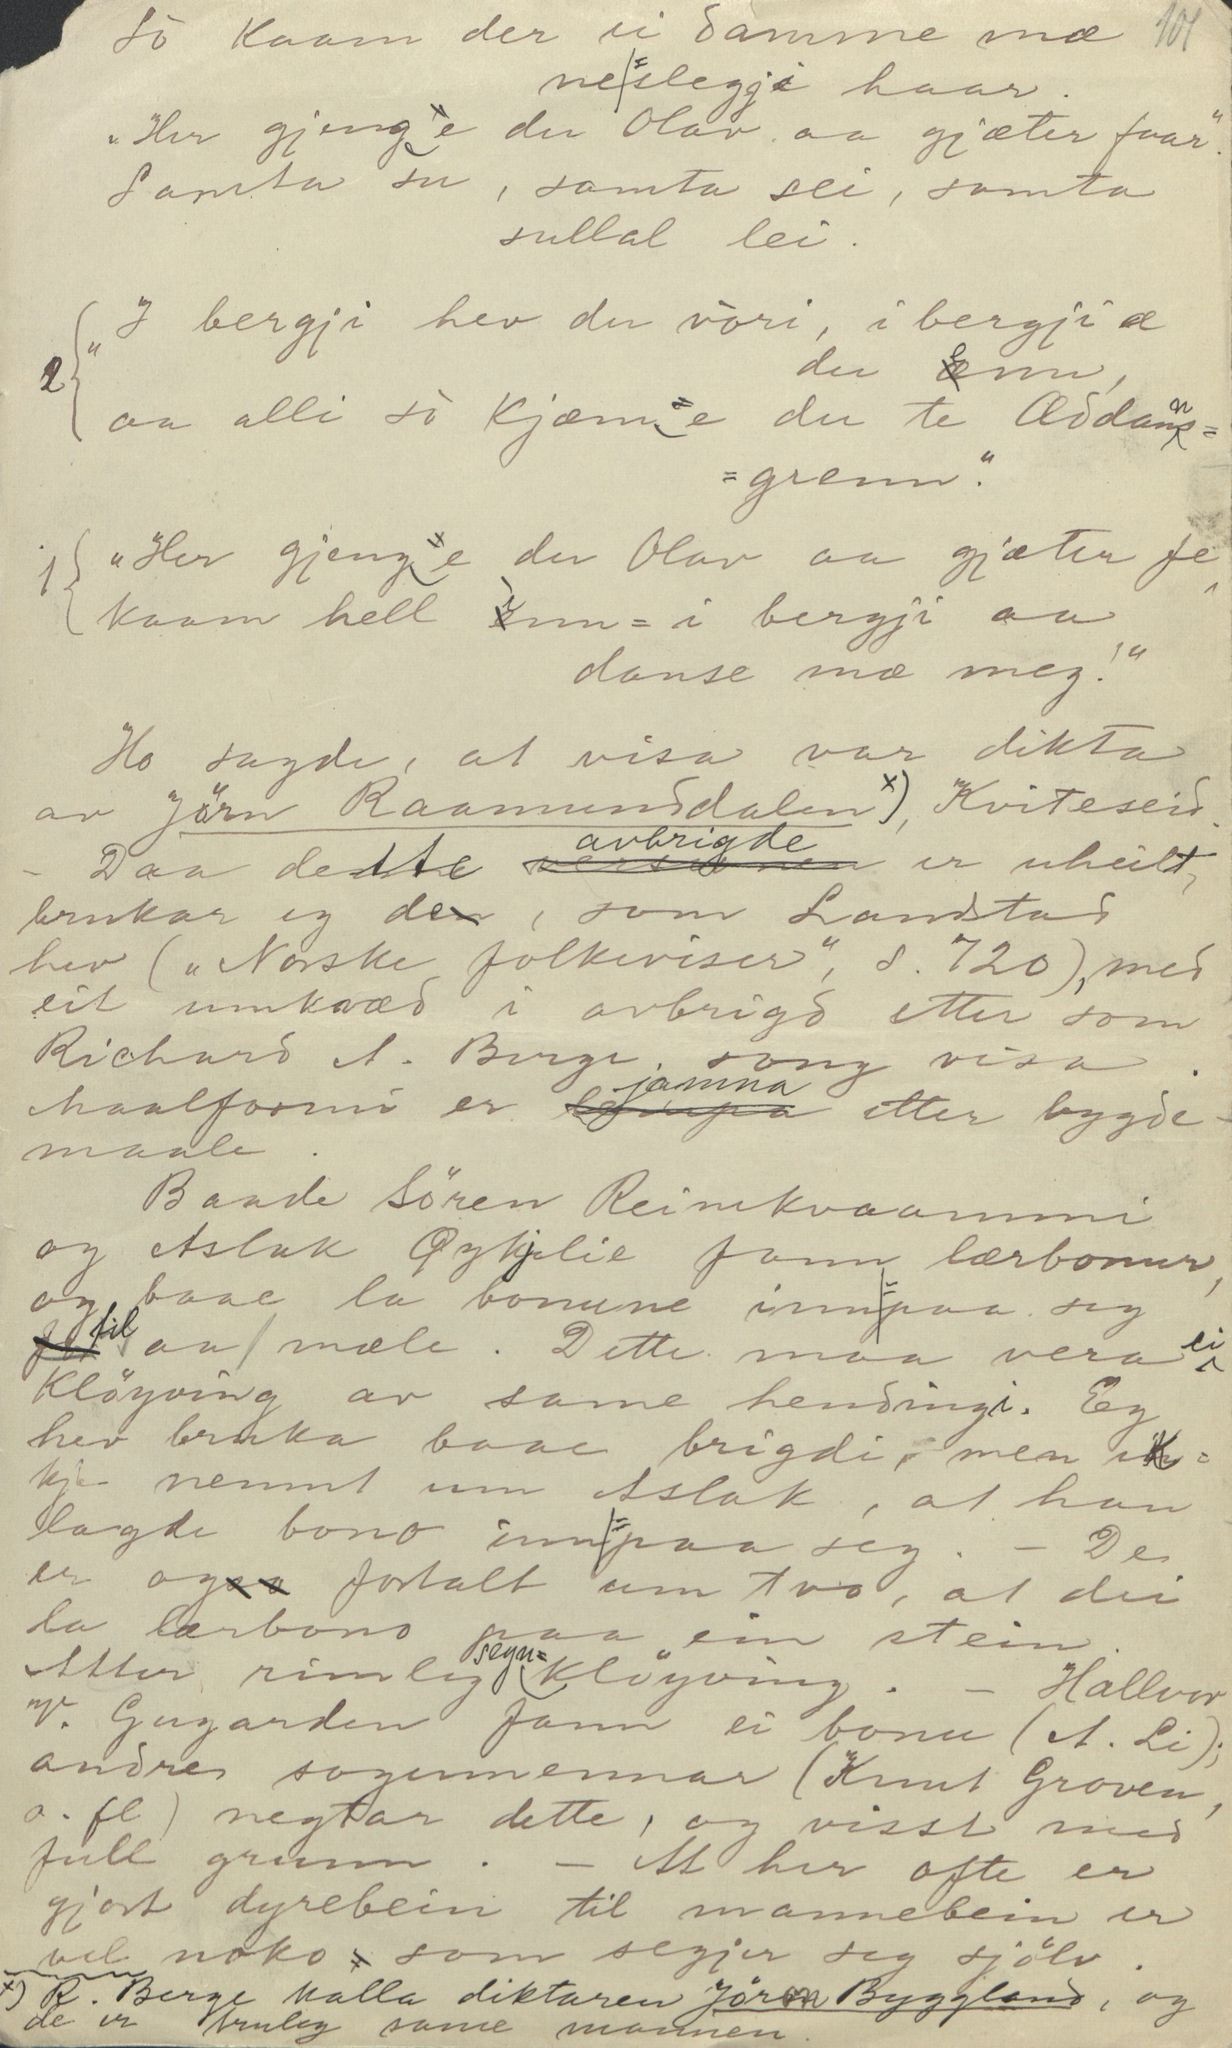 101
Sò kaam der ei damme mæ
ne=sleggji haar.
"Her gjeng'e du Olav aa gjæter faar".
Samta su, samta sei, samta
sullal lei.
2 "I bergji hev du vòri, i bergji æ
du enn,
aa alli sò kjæm=e du te Øddans=
=grenn".
1 "Her gjeng'e du Olav aa gjæter fe
kaam hell inn=i bergji aa
danse mæ meg!"
Ho sagde, at visa var dikta
av Jörn Raamunddalen x), Kviteseid.
- Daa dette avbrigde er uheilt,
brukar eg den, som Landstad
hev ("Norske folkeviser", s. 720), med
eit umkvæd i avbrigd etter som
Richard A. Berge song visa.
Maalformi er jamna etter bygde-
maale.
Baade Sören Reinskvaammi
og Aslak Øykjelie fann lærbonur,
og baae la bonune inn=paa seg
til aa mæle. Dette maa vera ei
klöyving av same hendingi. Eg
hev bruka baae brigdi, men ik=
kje nemnt um Aslak, at han
lagde bono inn=paa seg. - De
er og fortalt um tvo, at dei
la lærbono paa ein stein.
Atter rimleg segn=klöyving. - Hallvor
V. Gugarden fann ei bonu (A. Li);
andre sogumennar (Knut Groven,
o. fl) negtar dette, og visst med
full grunn. - At her ofte er
gjort dyrebein til mannebein er
vel noko som segjer seg sjölv.
x) R. Berge kalla diktaren Jören Byggland, og
de er truleg same mannen.